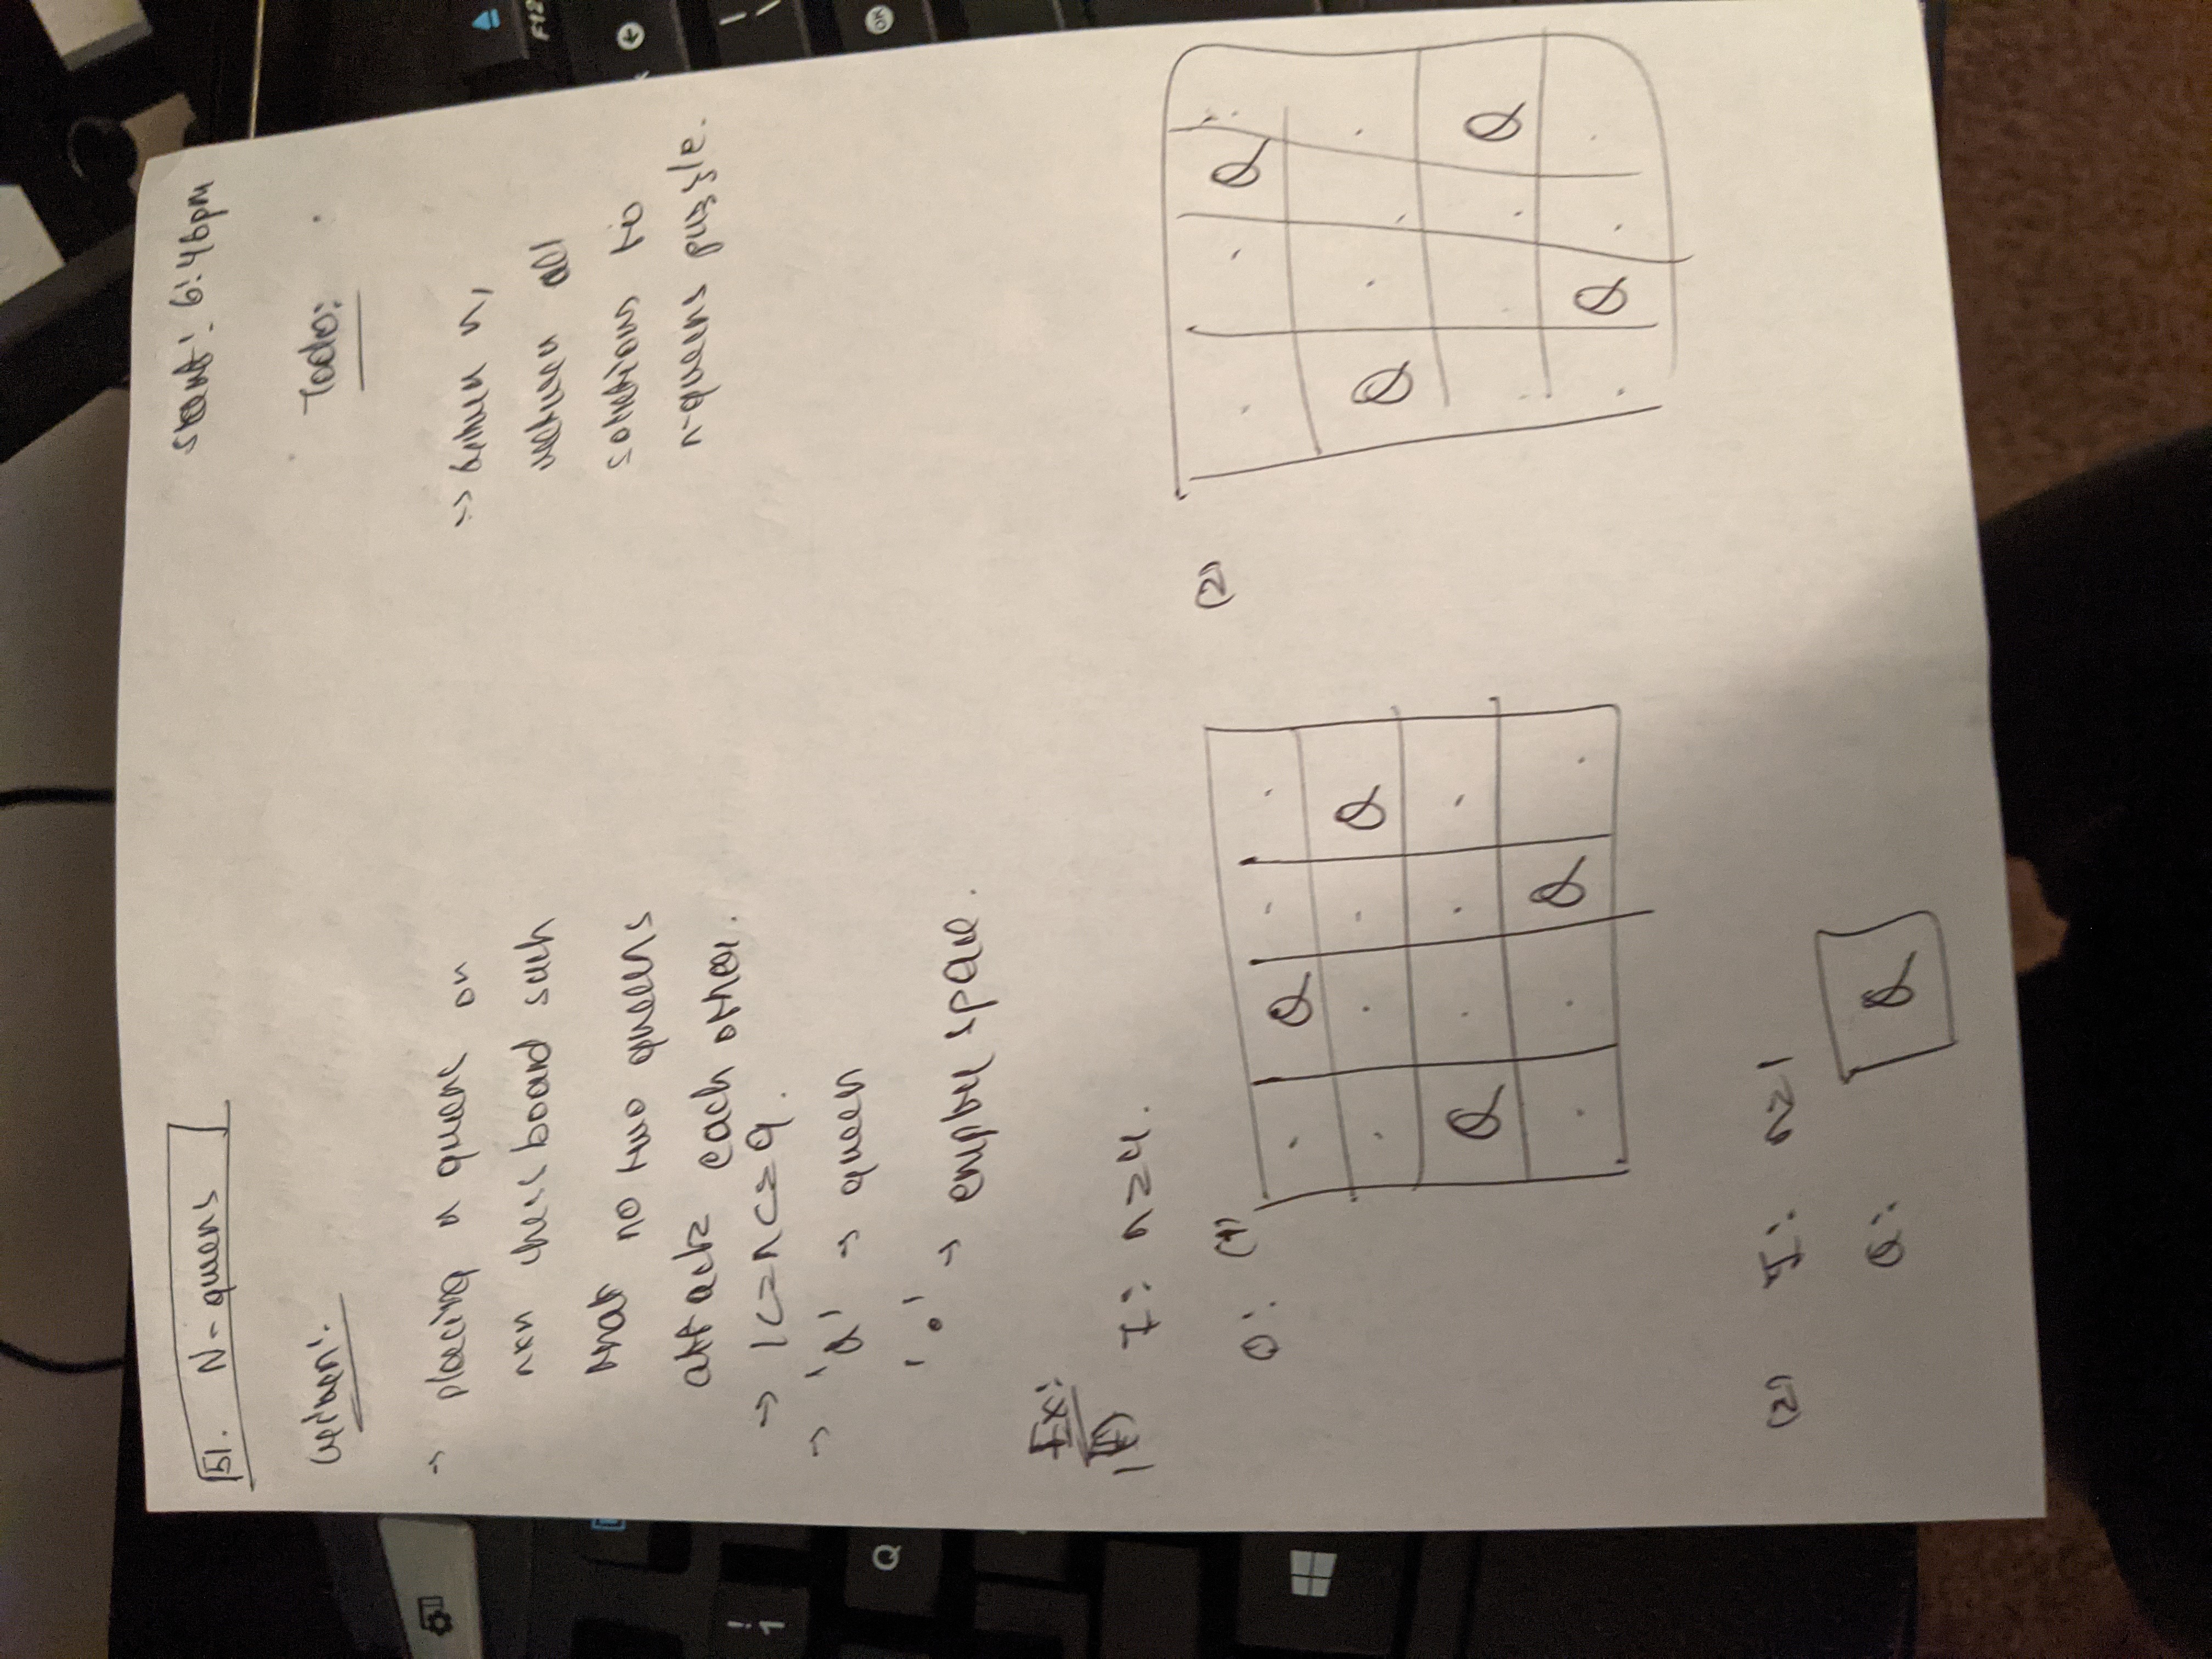 51. N-queens
Start: 6:46pm
Given:
→ placing n queens on
nxn chess board such
that no two queens
attack each other.
→ 1<=n<=9.
→ 'Q' → queen
'.' → empty space.
Todo:
→ Given n,
return all
solutions to
n-queens puzzle.
Ex:
1)
I: n=4.
O: (1)
. Q . .
. . . Q
Q . . .
. . Q .
(2)
. . Q .
Q . . .
. . . Q
. Q . .
(2) I: n=1
O:
Q
!
1
Q
F12
OK